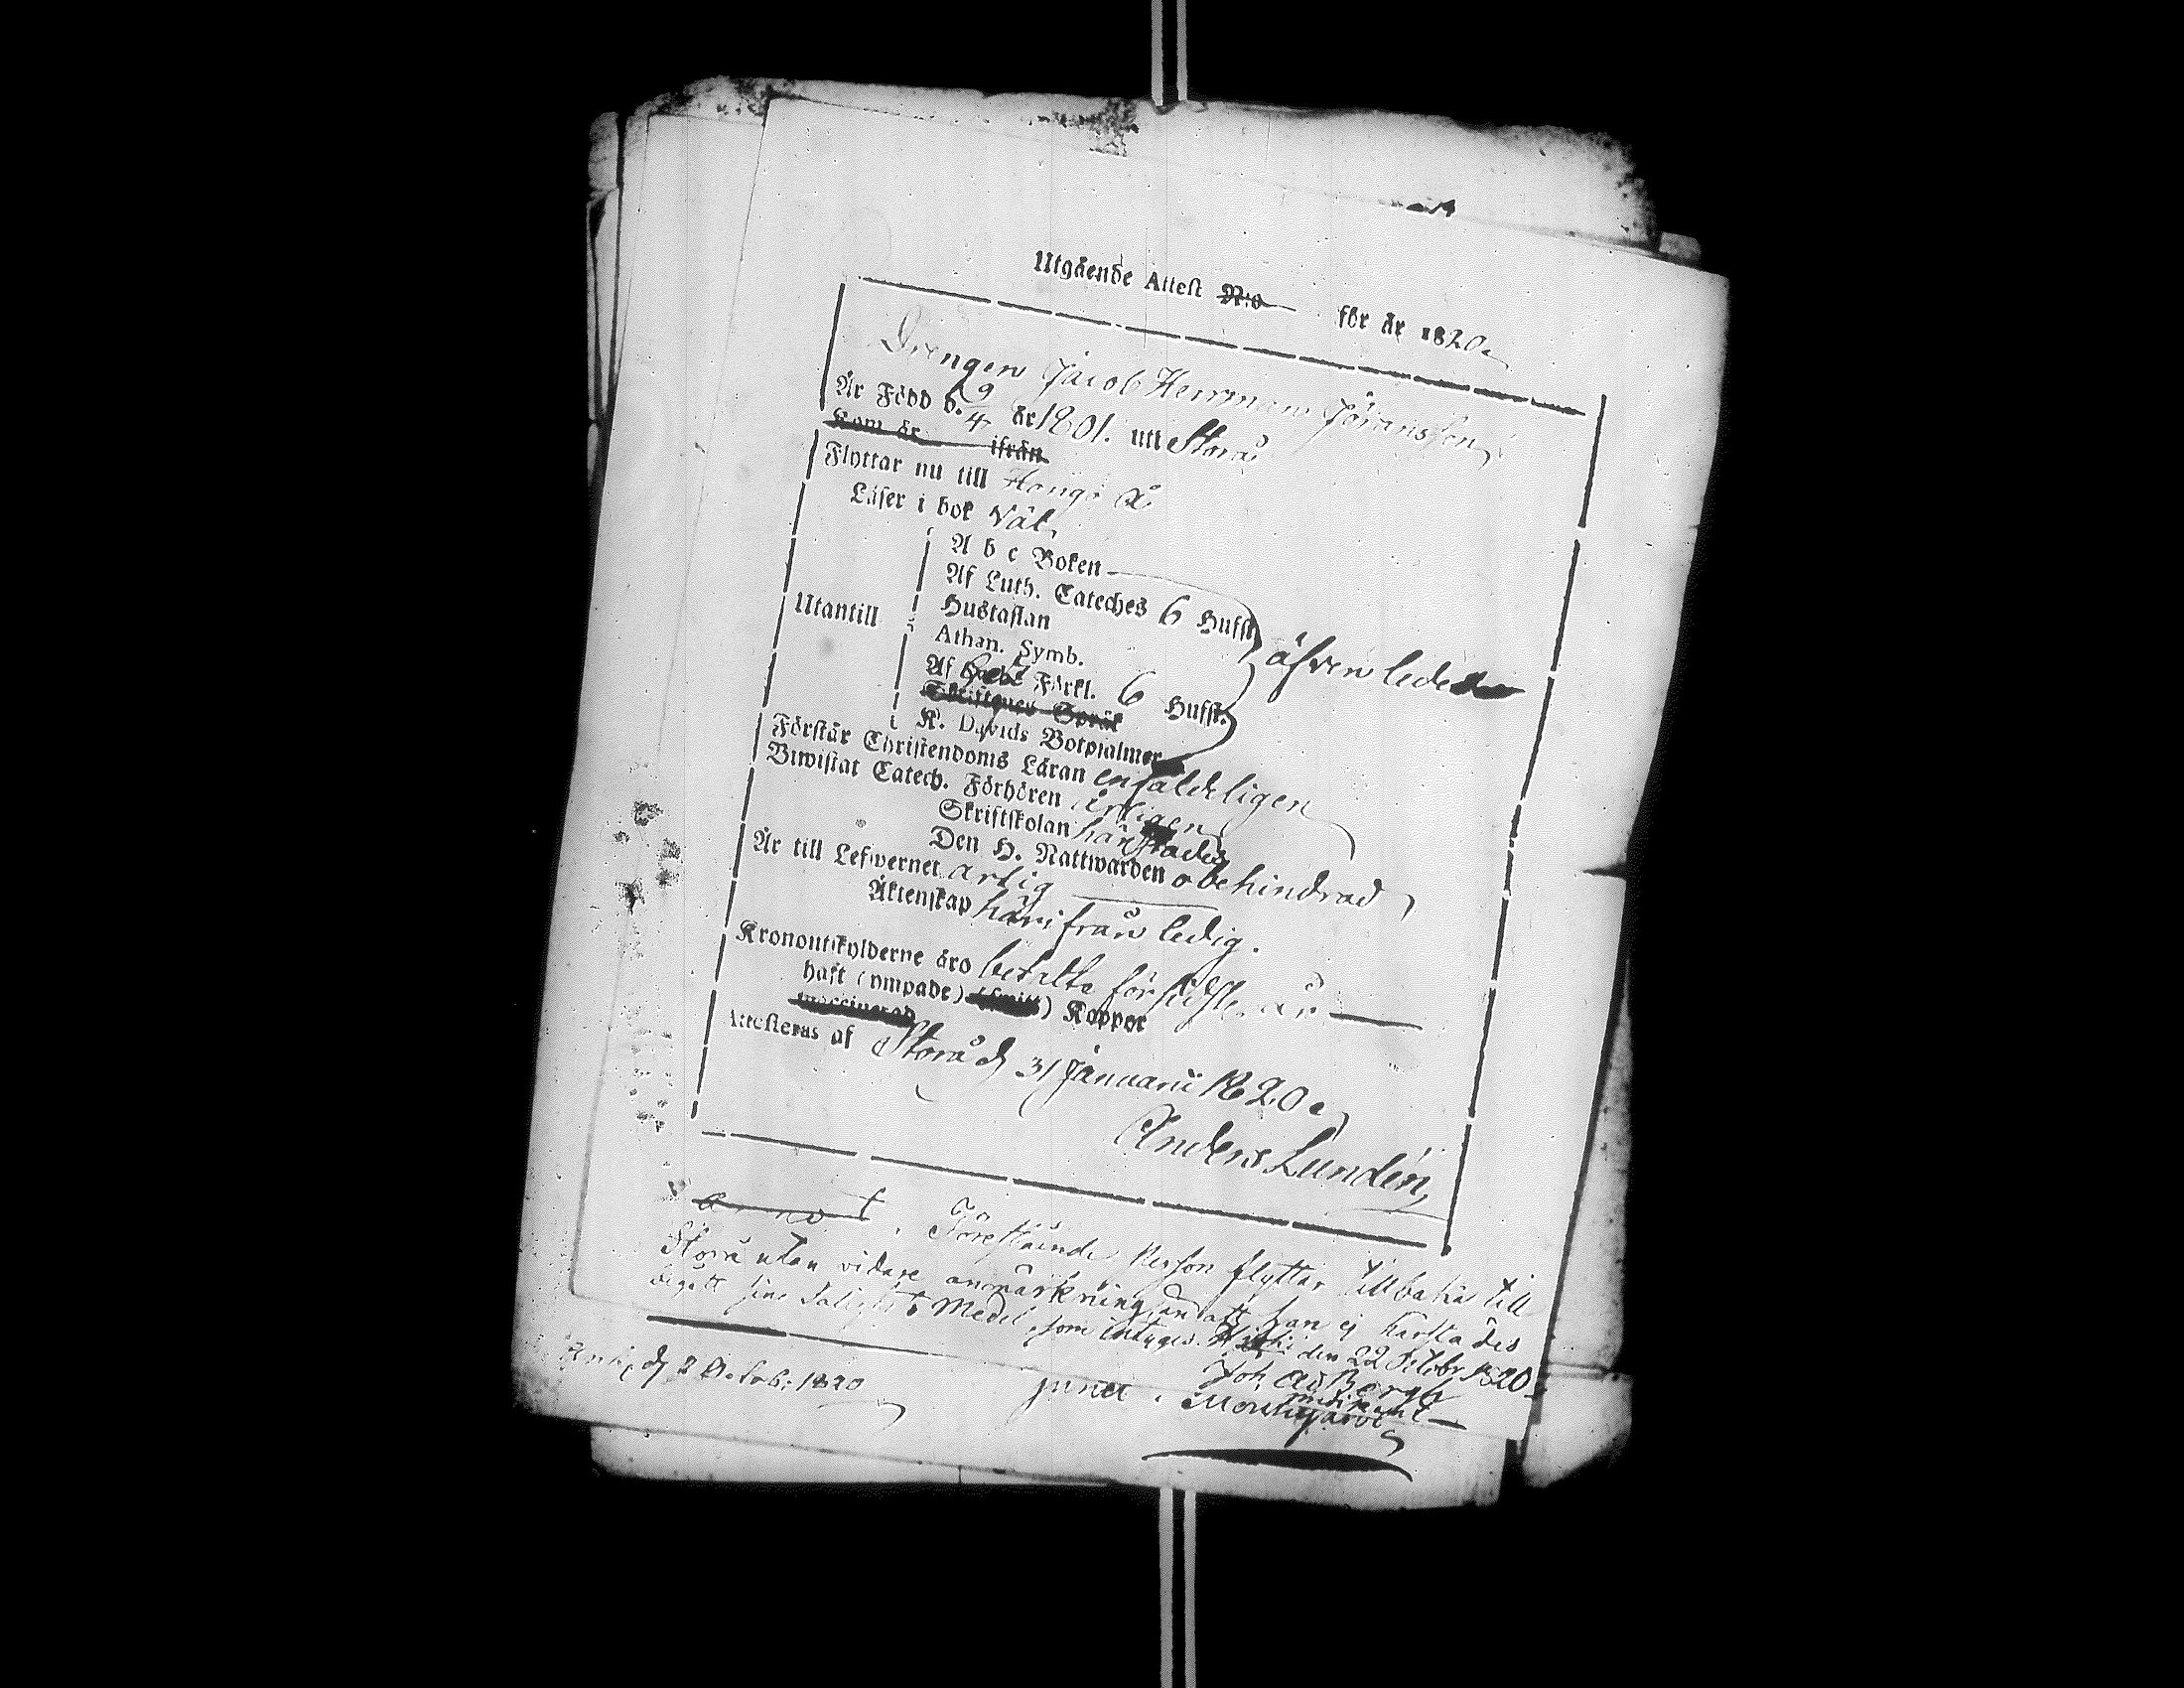 Utgående Attest N:o för år 1820.
Drengen Jacob Herrman Jöransson
Är Född d. 9/4 år 1801. uti Storå
Kom år ifrån
Flyttar nu till Hongo Å
Läser i bok Väl,
A b c Boken
Af Luth. Cateches 6 Hufst.
Hustaflan
Utantill
Athan. Symb.
äfven lede
Af Förkl. 6 Hufst.
Skriftenes Språk
K. Davids Botpsalmer
Förstår Christendoms Läran enfaldeligen
Biwistat Catech. Förhören årligen
Skriftskolan härstädes
Den H. Nattwarden obehindrad
Är till Lefwernet arlig
Äktenskap härifrån ledig.
Kronoutskylderne äro betalte för sidstl. år
haft (ympade) Koppor
waccinerad
Attesteras af Storå d. 31 Januarii 1820.
Anders Lundén,
Föreståinde Person flyttar tillbaka till
Storå utan vidare anmärkning än att han ej härstädes
begått sine Salighets Medel, som intygas den 22 October 1820.
Joh. Ad. Bergh
d. 2 Octob: 1820